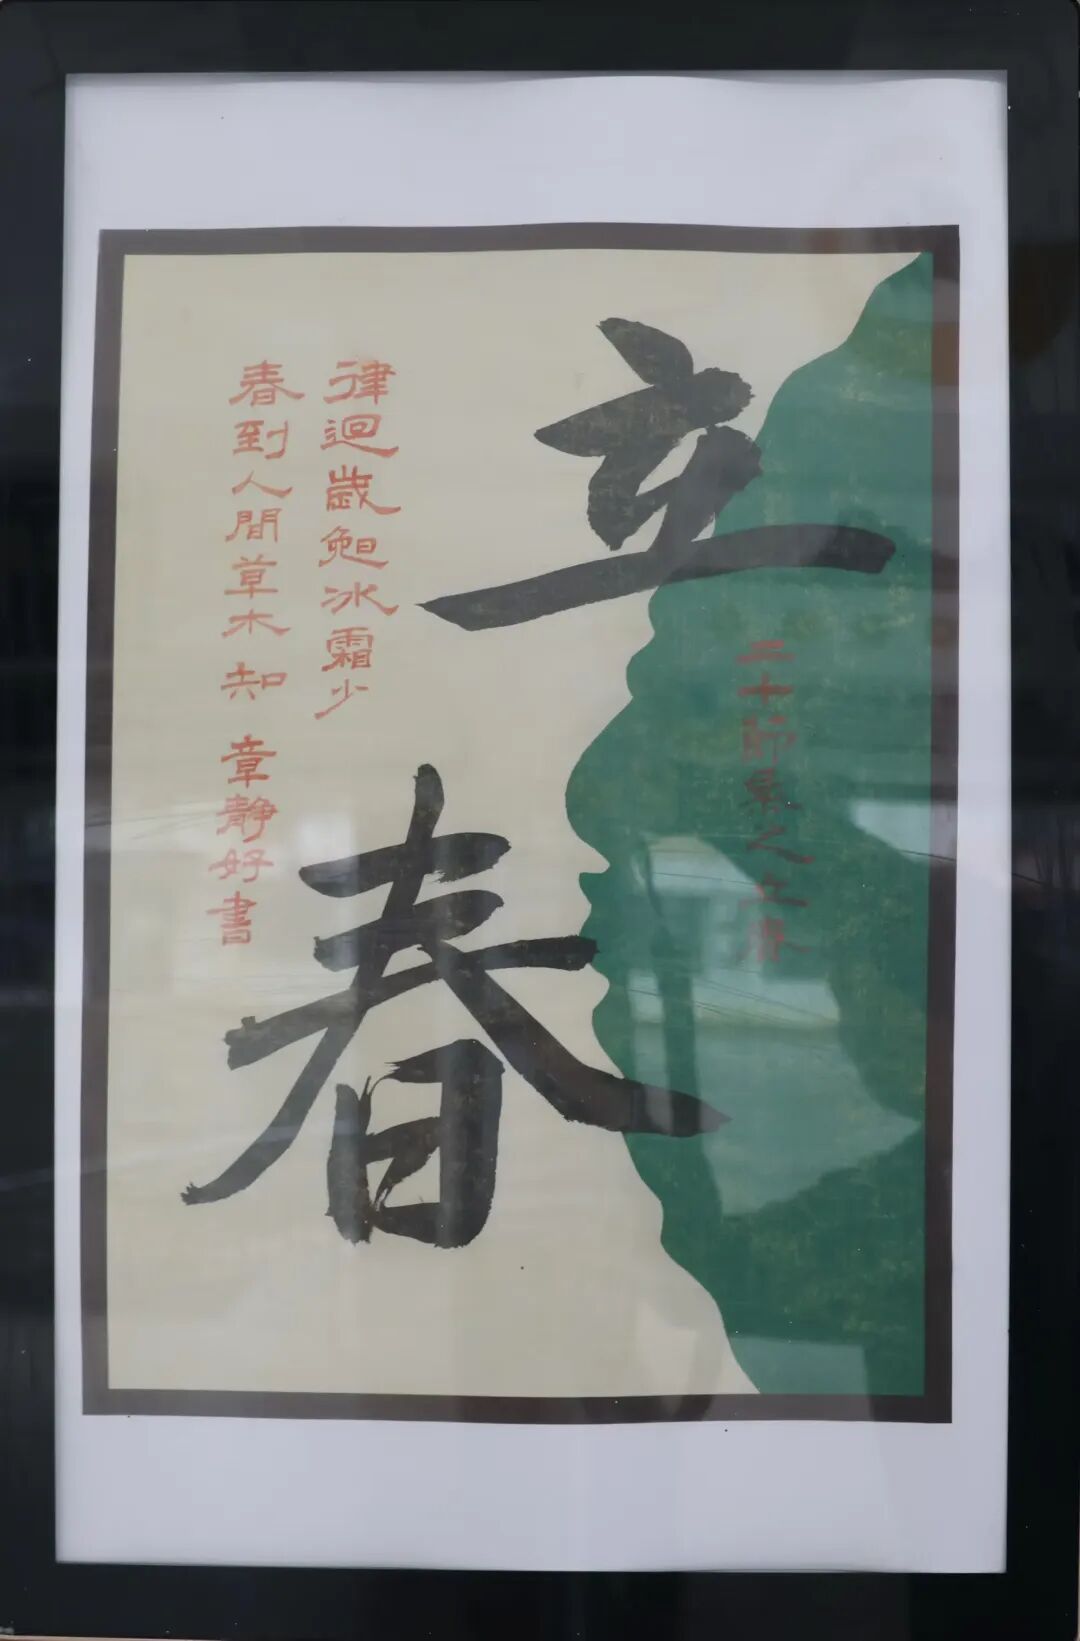 立春
二十節氣之立春
律迴歲䩄冰霜少
春到人間草木知 章靜好書